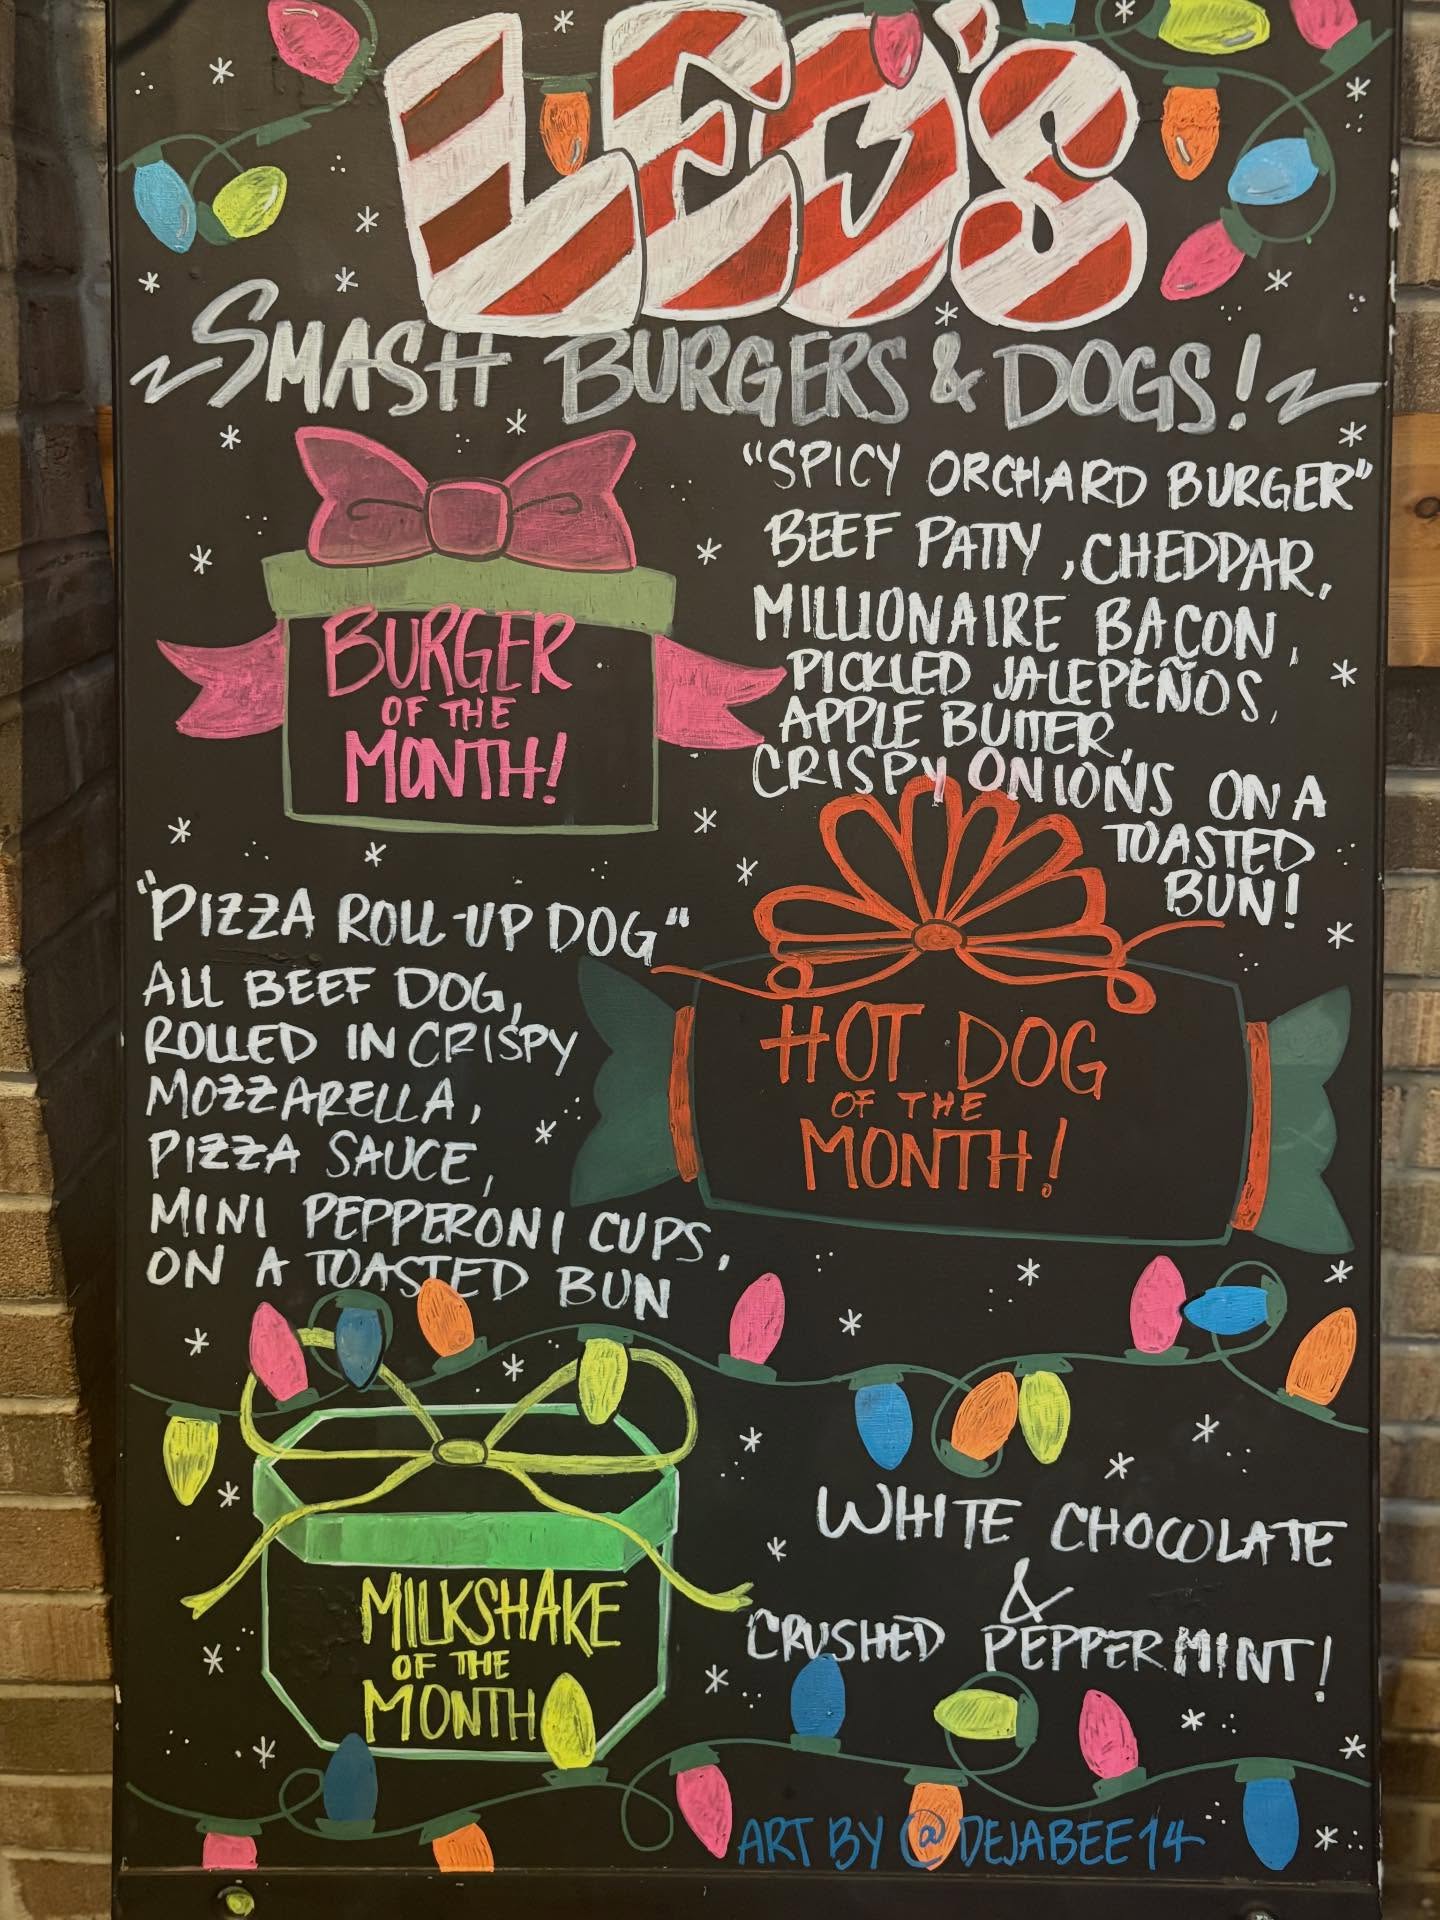 LEO'S
SMASH BURGERS & DOGS!
BURGER
OF THE
MONTH!
"SPICY ORCHARD BURGER"
BEEF PATTY, CHEDDAR,
MILLIONAIRE BACON,
PICKLED JALEPEÑOS,
APPLE BUTTER,
CRISPY ONIONS ON A
TOASTED
BUN!
"PIZZA ROLL-UP DOG"
ALL BEEF DOG,
ROLLED IN CRISPY
MOZZARELLA,
PIZZA SAUCE,
MINI PEPPERONI CUPS,
ON A TOASTED BUN
HOT DOG
OF THE
MONTH!
MILKSHAKE
OF THE
MONTH
WHITE CHOCOLATE
&
CRUSHED PEPPERMINT!
ART BY @DEJABEE14